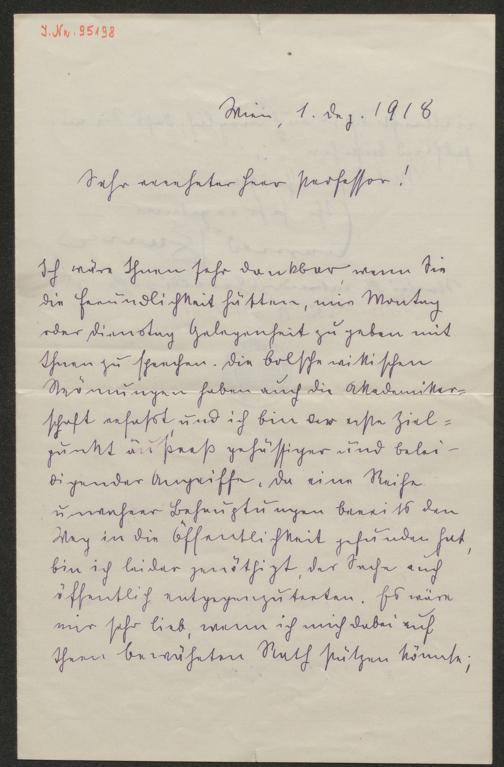 J.Nr. 95198
Wien, 1. Dez. 1918
Sehr verehrter Herr Professor!
Ich wäre Ihnen sehr dankbar wenn Sie
die Freundlichkeit hätten, mir Montag
oder Dienstag Gelegenheit zu geben mit
Ihnen zu sprechen. Die bolschewikischen
Strömungen haben auch die Akademiker=
schaft erfaßt, und ich bin der erste Ziel=
punkt äußerst gehässiger und belei-
digender Angriffe. Da eine Reihe
unwahrer Behauptungen bereits den
Weg in die Öffentlichkeit gefunden hat,
bin ich leider genöthigt, der Sache auch
öffentlich entgegenzutreten. Es wäre
mir sehr lieb, wenn ich mich dabei auf
Ihren bewährten Rath stützen könnte;